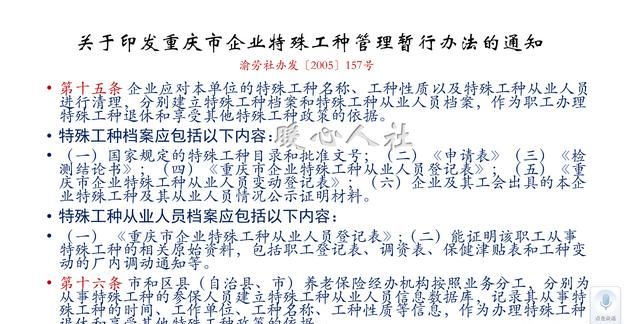 关于印发重庆市企业特殊工种管理暂行办法的通知
渝劳社办发〔2005〕157号
• 第十五条 企业应对本单位的特殊工种名称、工种性质以及特殊工种从业人员
进行清理，分别建立特殊工种档案和特殊工种从业人员档案，作为职工办理
特殊工种退休和享受其他特殊工种政策的依据。
• 特殊工种档案应包括以下内容：
暖心人社
• （一）国家规定的特殊工种目录和批准文号；（二）《申请表》（三）《检
测结论书》；（四）《重庆市企业特殊工种从业人员登记表》；（五）《重
庆市企业特殊工种从业人员变动登记表》；（六）企业及其工会出具的本企
业特殊工种及其从业人员情况公示证明材料。
• 特殊工种从业人员档案应包括以下内容：
• （一）《重庆市企业特殊工种从业人员登记表》；（二）能证明该职工从事
特殊工种的相关原始资料，包括职工登记表、调资表、保健津贴表和工种变
动的厂内调动通知等。
• 第十六条 市和区县（自治县、市）养老保险经办机构按照业务分工，分别为
从事特殊工种的参保人员建立特殊工种从业人员信息数据库，记录其从事特
殊工种的时间、工作单位、工种名称、工种性质等信息，作为办理特殊工种
退休和享受其他特殊工种政策的依据
点击说话